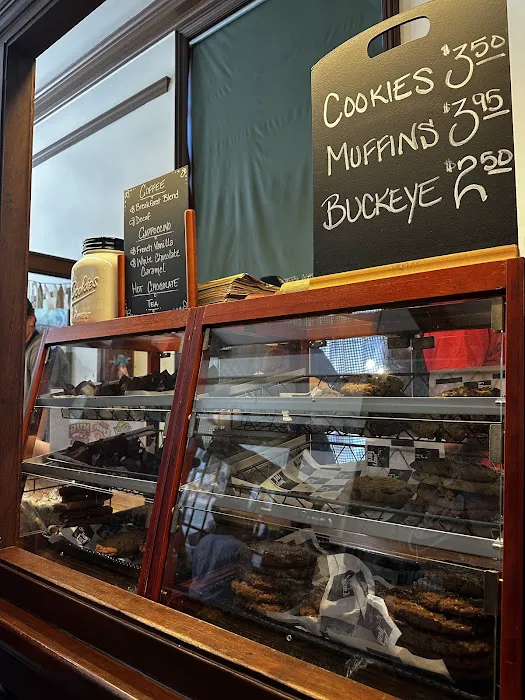 Cookies $3.50
Muffins $3.95
Buckeye $2.50
Coffee
Breakfast Blend
Decaf
Cappuccino
French Vanilla
White Chocolate
Caramel
Hot Chocolate
Tea
Cookies